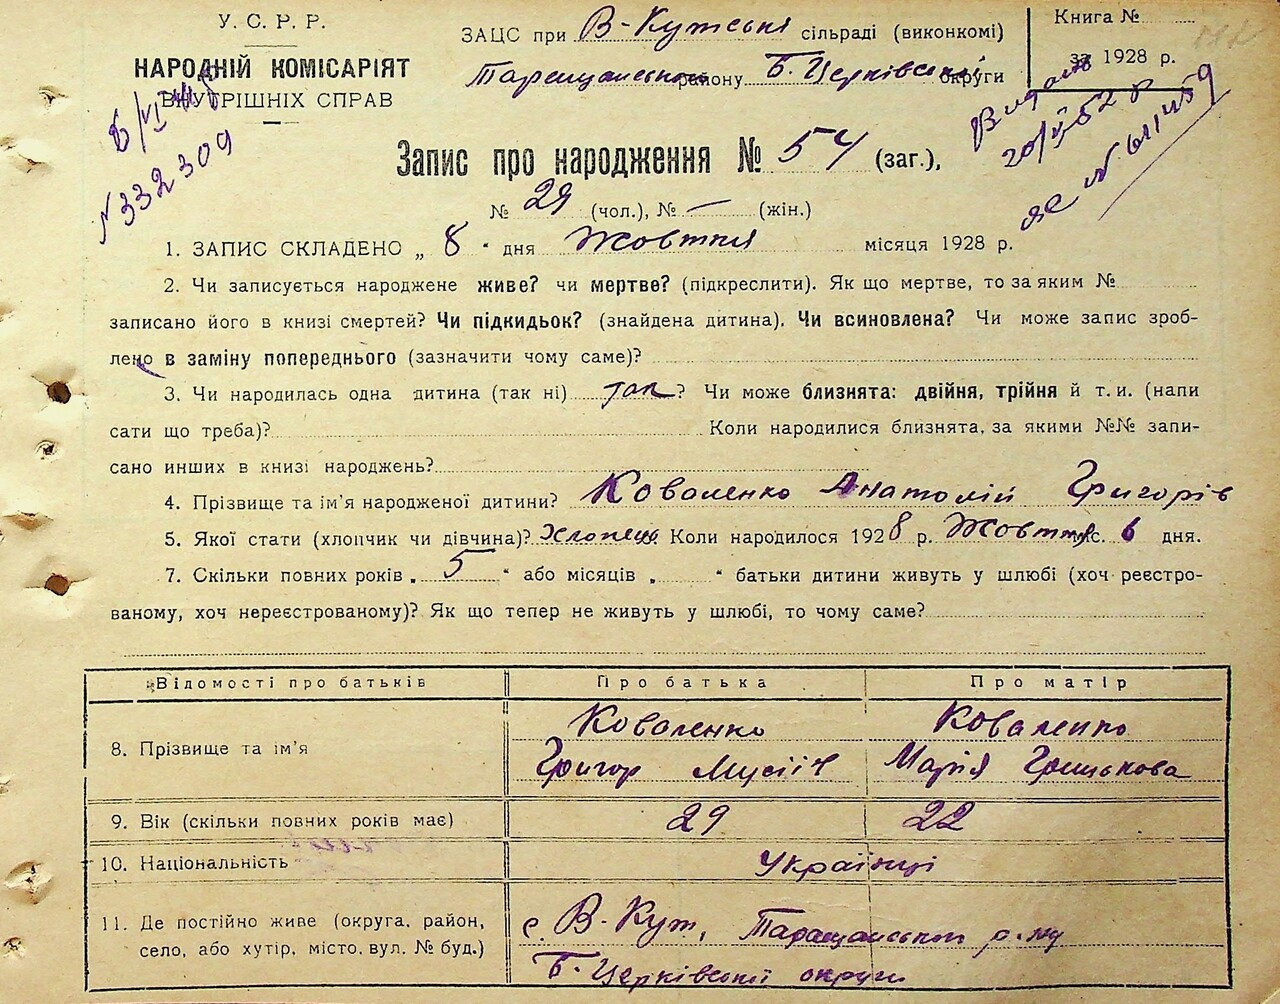 У. С. Р. Р.
НАРОДНІЙ КОМІСАРІЯТ
ВНУТРІШНІХ СПРАВ
№332309
ЗАЦС при В-Кутській сільраді (виконкомі)
Таращанського району Б. Церківської округи
Книга №
за 1928 р.
Видано
Запис про народження № 54 (заг.),
№ 29 (чол.), № — (жін.)
1. ЗАПИС СКЛАДЕНО „ 8 “ дня Жовтня місяця 1928 р.
2. Чи записується народжене живе? чи мертве? (підкреслити). Як що мертве, то за яким №
записано його в книзі смертей? Чи підкидьок? (знайдена дитина). Чи всиновлена? Чи може запис зроб-
лено в заміну попереднього (зазначити чому саме)?
3. Чи народилась одна дитина (так ні) так? Чи може близнята: двійня, трійня й т. и. (напи
сати що треба)? Коли народилися близнята, за якими №№ запи-
сано инших в книзі народжень?
4. Прізвище та ім'я народженої дитини? Коваленко Анатолій Григорів
5. Якої стати (хлопчик чи дівчина)? Хлопець Коли народилося 1928 р. Жовтня міс. 6 дня.
7. Скільки повних років „ 5 “ або місяців „ “ батьки дитини живуть у шлюбі (хоч реєстро-
ваному, хоч нереєстрованому)? Як що тепер не живуть у шлюбі, то чому саме?
Відомості про батьків Про батька Про матір
8. Прізвище та ім'я Коваленко Григор Мусіїв Коваленко Марія Грицькова
9. Вік (скільки повних років має) 29 22
10. Національність Українці
11. Де постійно живе (округа, район,
село, або хутір, місто, вул. № буд.)
с. В-Кут, Таращанського р-ну
Б. Церківської округи